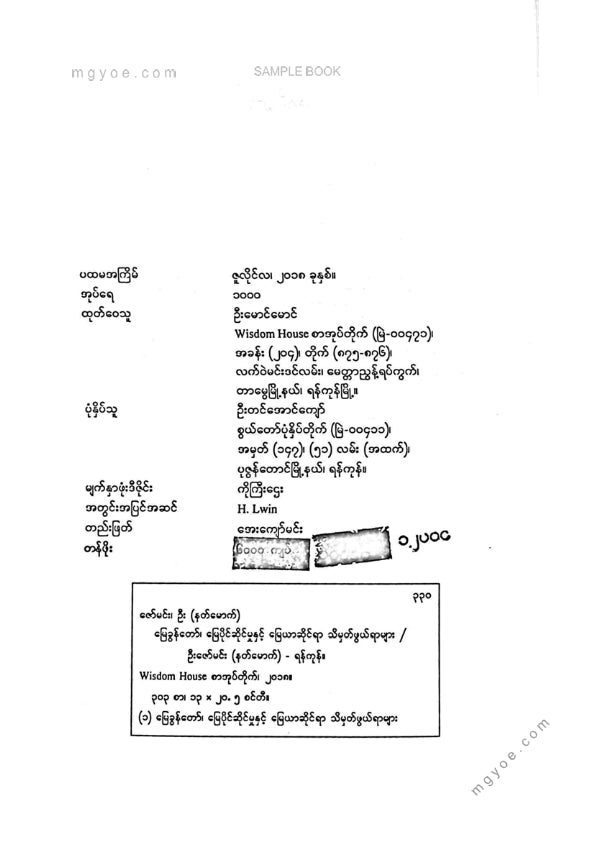 mgyoe.com
SAMPLE BOOK
ပထမအကြိမ် ဇူလိုင်လ၊ ၂၀၁၈ ခုနှစ်။
အုပ်ရေ ၁၀၀၀
ထုတ်ဝေသူ ဦးမောင်မောင်
Wisdom House စာအုပ်တိုက် (မြဲ-၀၀၄၇၁)၊
အခန်း (၂၀၄)၊ တိုက် (၈၇၅-၈၇၆)၊
လက်ဝဲမင်းဒင်လမ်း၊ မေတ္တာညွန့်ရပ်ကွက်၊
တာမွေမြို့နယ်၊ ရန်ကုန်မြို့။
ပုံနှိပ်သူ ဦးတင်အောင်ကျော်
စွယ်တော်ပုံနှိပ်တိုက် (မြဲ-၀၀၄၁၁)၊
အမှတ် (၁၄၇)၊ (၅၁) လမ်း (အထက်)၊
ပုဇွန်တောင်မြို့နယ်၊ ရန်ကုန်။
မျက်နှာဖုံးဒီဇိုင်း ကိုကြီးဌေး
အတွင်းအပြင်အဆင် H. Lwin
တည်းဖြတ် အေးကျော်မင်း
တန်ဖိုး ၆၀၀၀ ကျပ်
၃၃၀
ဇော်မင်း၊ ဦး (နတ်မောက်)
မြေခွန်တော်၊ မြေပိုင်ဆိုင်မှုနှင့် မြေယာဆိုင်ရာ သိမှတ်ဖွယ်ရာများ /
ဦးဇော်မင်း (နတ်မောက်) - ရန်ကုန်။
Wisdom House စာအုပ်တိုက်၊ ၂၀၁၈။
၃၀၃ စာ၊ ၁၃ × ၂၀.၅ စင်တီ။
(၁) မြေခွန်တော်၊ မြေပိုင်ဆိုင်မှုနှင့် မြေယာဆိုင်ရာ သိမှတ်ဖွယ်ရာများ
mgyoe.com